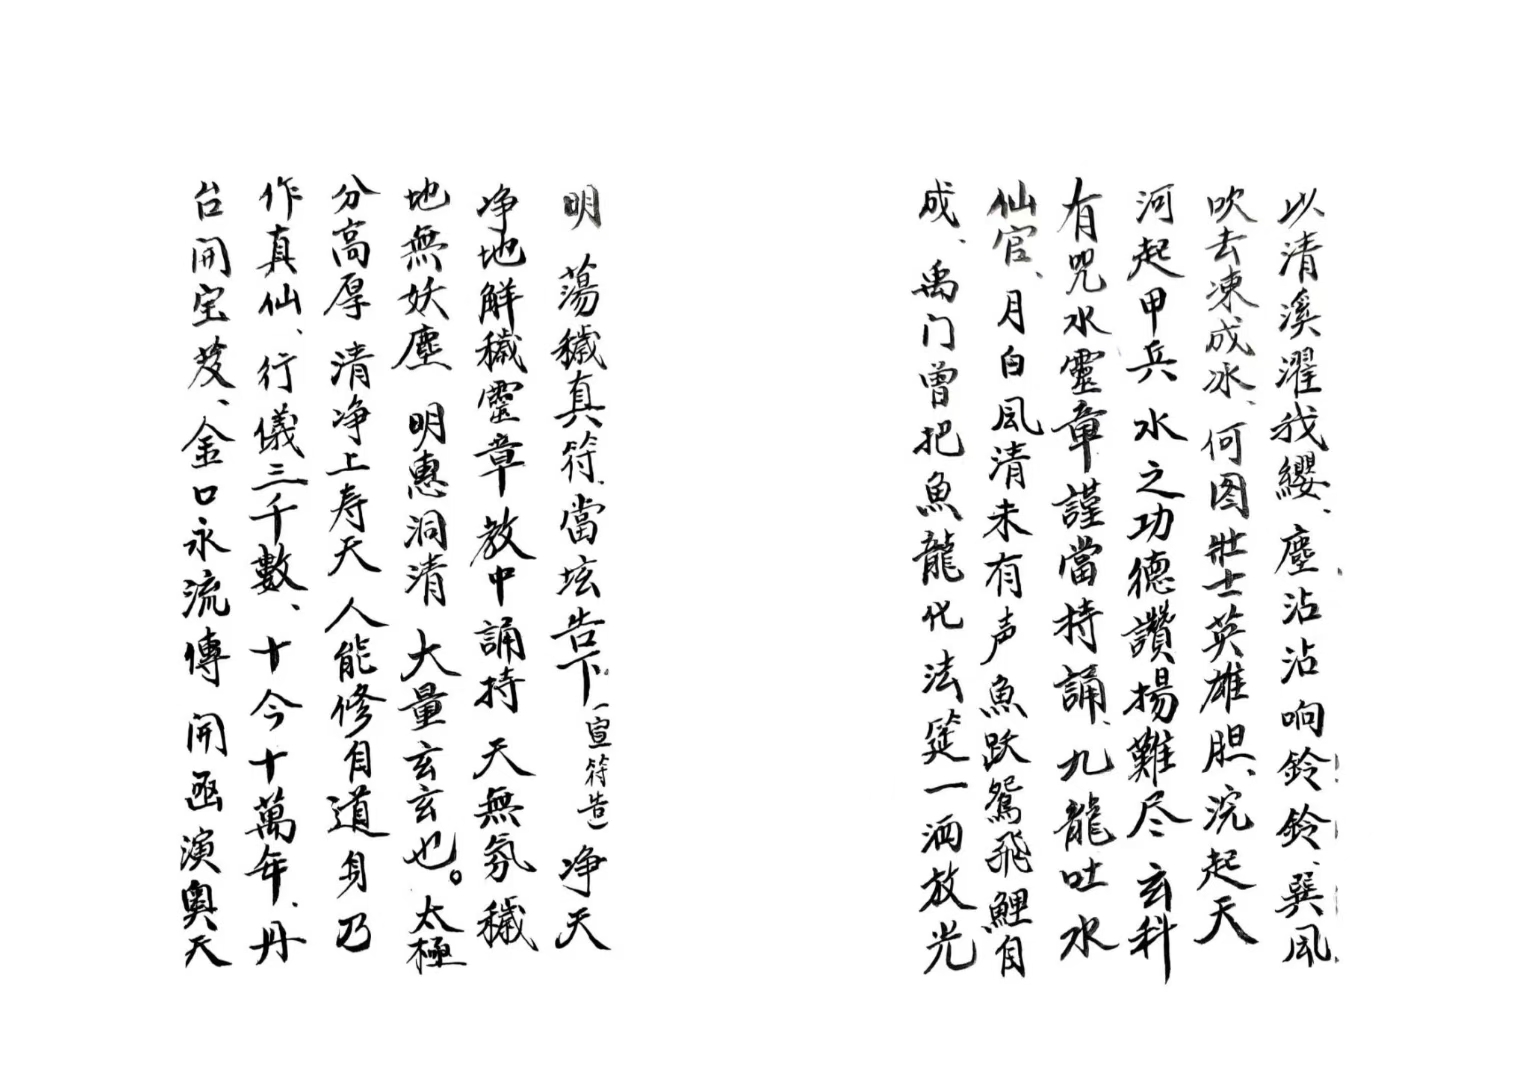 以清溪濯我纓、塵沾沾响鈴鈴、巽風
吹去凍成冰、何图壯士英雄胆、浣起天
河起甲兵 水之功德讚揚難尽 玄科
有咒水靈章謹當持誦、九龍吐水
仙官、月白風清未有声 魚跃鴛飛鯉自
成、禹门曾把魚龍化 法筵一洒放光
明 蕩穢真符、當坛告下（宣符告） 净天
净地解穢靈章 教中誦持 天無氛穢
地無妖塵 明惠洞清 大量玄玄也。太極
分高厚 清净上寿天 人能修自道 身乃
作真仙、行儀三千數、十今十萬年、丹
台開宝芨、金口永流傳 開函演奧天